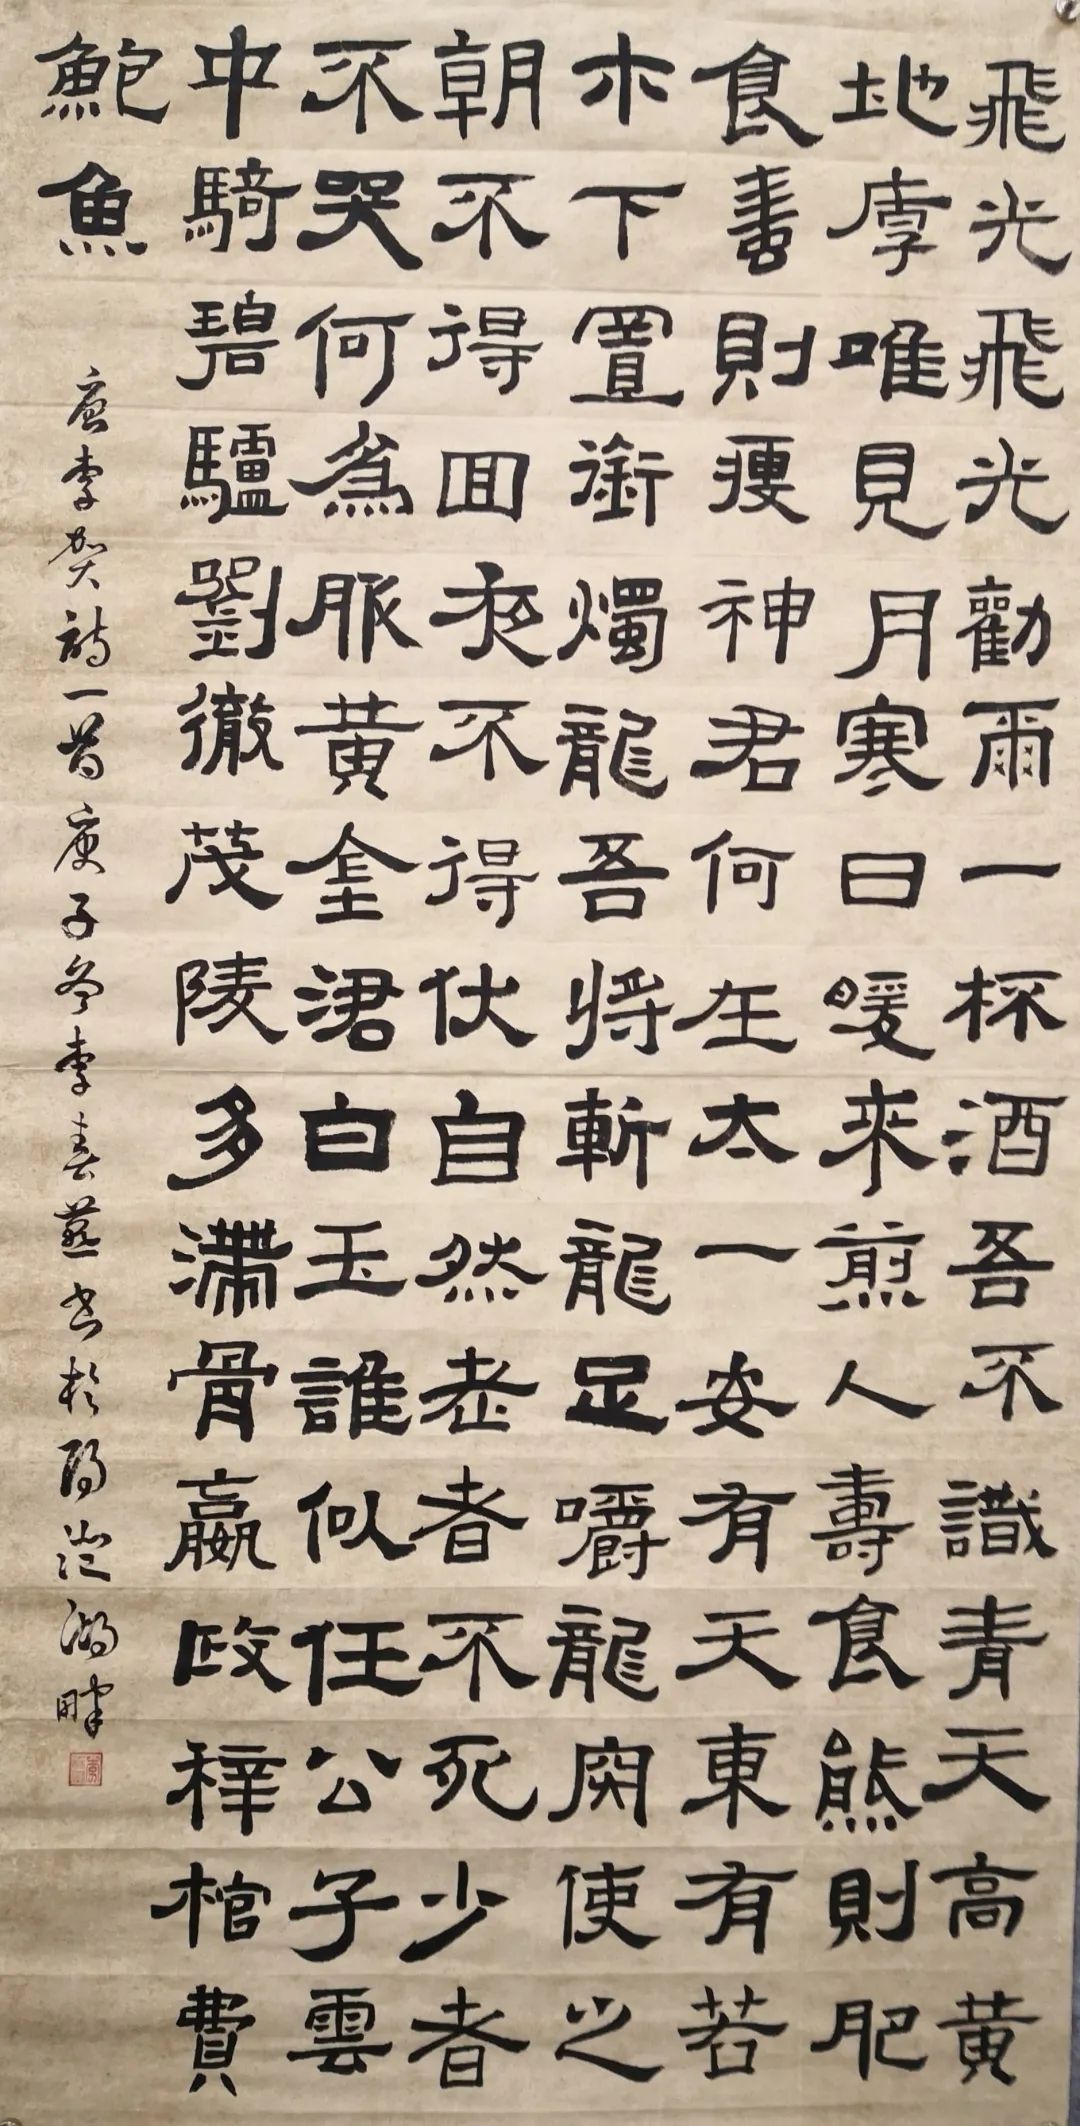 飛光飛光勸爾一杯酒吾不識青天高黃
地厚唯見月寒日暖來煎人壽食熊則肥
食蛙則瘦神君何在太一安有天東有若
木下置銜燭龍吾將斬龍足嚼龍肉使之
朝不得囬夜不得伏自然老者不死少者
不哭何為服黃金涒白玉誰似任公子雲
中騎碧驢劉徹茂陵多滯骨嬴政梓棺費
鮑魚
唐李賀詩一首庚子冬李春燕書於陽澄湖畔